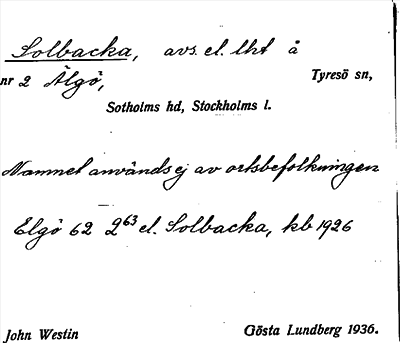 Solbacka, avs. el. lht å
nr 2 Älgö, Tyresö sn,
Sotholms hd, Stockholms l.
Namnet används ej av ortsbefolkningen
Elgö 62 2⁶³ el. Solbacka, kb 1926
John Westin Gösta Lundberg 1936.